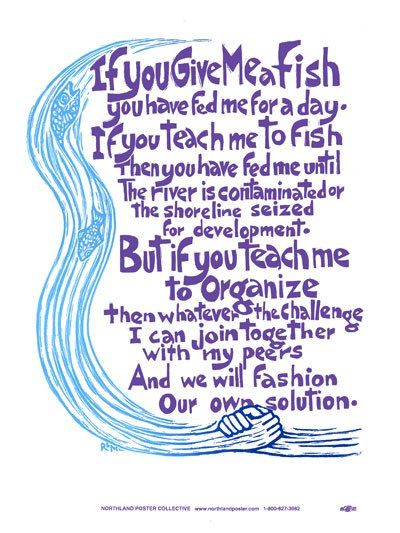 If you Give Me a Fish
you have fed me for a day.
If you teach me to fish
then you have fed me until
the river is contaminated or
the shoreline seized
for development.
But if you teach me
to Organize
then whatever the challenge
I can join together
with my peers
And we will fashion
Our own solution.
RLM
NORTHLAND POSTER COLLECTIVE www.northlandposter.com 1-800-627-3082